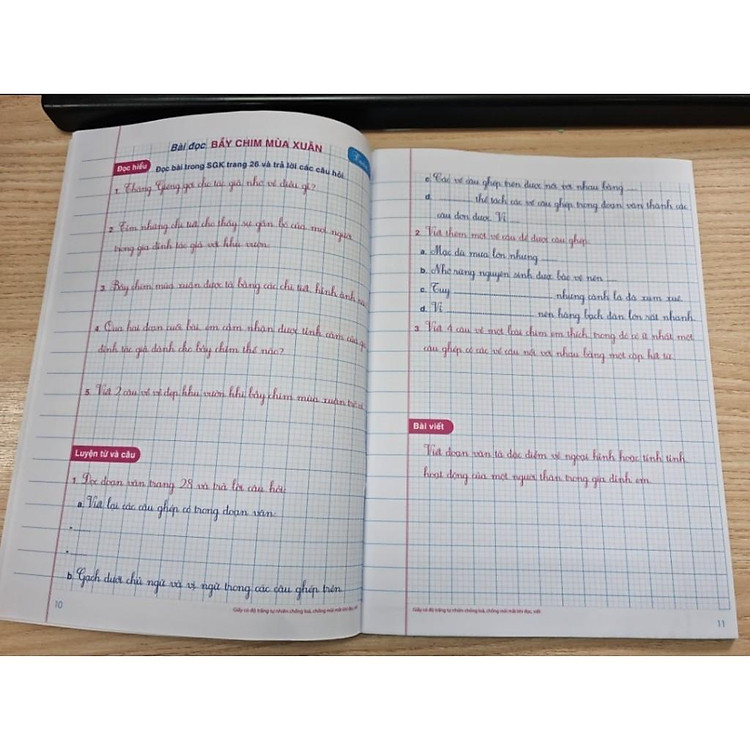 Bài đọc BẦY CHIM MÙA XUÂN
Đọc hiểu
Đọc bài trong SGK trang 26 và trả lời các câu hỏi.
1. Tháng Giêng gợi cho tác giả nhớ về điều gì?
2. Tìm những chi tiết cho thấy sự gắn bó của mọi người
trong gia đình tác giả với khu vườn.
3. Bầy chim mùa xuân được tả bằng các chi tiết, hình ảnh
4. Qua hai đoạn cuối bài, em cảm nhận được tình cảm của gia
đình tác giả dành cho bầy chim thế nào?
5. Viết 2 câu về vẻ đẹp khu vườn khi bầy chim mùa xuân
Luyện từ và câu
1. Đọc đoạn văn trang 28 và trả lời câu hỏi:
a. Viết lại các câu ghép có trong đoạn văn.
b. Gạch dưới chủ ngữ và vị ngữ trong các câu ghép trên.
10
Giấy có độ trắng tự nhiên chống loá, chống mỏi mắt khi đọc,
c. Các vế câu ghép trên được nối với nhau bằng
d. thể tách các vế câu ghép trong đoạn văn thành các
câu đơn được. Vì
2. Viết thêm một vế câu để được câu ghép:
a. Mặc dù mưa lớn nhưng
b. Nhờ rừng nguyên sinh được bảo vệ nên
c. Tuy nhưng cành lá đã xum xuê.
d. Vì nên hàng bạch đàn lớn rất nhanh.
3. Viết 4 câu về một loài chim em thích, trong đó có ít nhất một
câu ghép có các vế câu nối với nhau bằng một cặp kết từ.
Bài viết
Viết đoạn văn tả đặc điểm về ngoại hình hoặc tính tình,
hoạt động của một người thân trong gia đình em.
Giấy có độ trắng tự nhiên chống loá, chống mỏi mắt khi đọc, viết
11